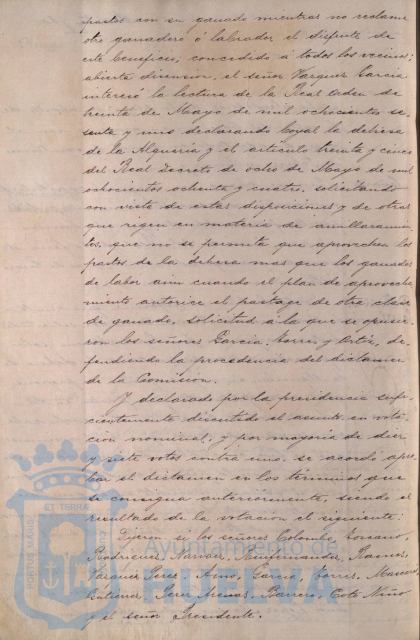 pastos con su ganado mientras no reclame
otro ganadero ó labrador el disfrute de
este beneficio, concedido á todos los vecinos;
abierta discusion, el señor Vazquez Garcia
interesó la lectura de la Real orden de
treinta de Mayo de mil ochocientos se
senta y uno declarando boyal la dehesa
de la Alquería y el artículo treinta y cinco
del Real Decreto de ocho de Mayo de mil
ochocientos ochenta y cuatro, solicitando
con vista de estas disposiciones y de otras
que rigen en materia de amillaramien
tos, que no se permita que aprovechen los
pastos de la dehesa mas que los ganados
de labor aun cuando el plan de aprovecha
miento autorice el pastage de otra clase
de ganado, solicitud á la que se opusie
ron los señores Garcia, Torres y Ortiz, de
fendiendo la procedencia del dictamen
de la Comision.
Y declarado por la presidencia sufi
cientemente discutido el asunto, en vota
cion nominal, y por mayoría de diez
y siete votos contra uno, se acordó apro
bar el dictamen en los términos que
se consigna anteriormente, siendo el
resultado de la votacion el siguiente:
Dijeron si los señores Colombo, Soriano,
Rodriguez Hernandez, Ramos,
Vazquez Perez, Garcia, Torres,
Gutierrez, Perez Barrera, Coto Niño
y el señor Presidente.
PORTUS MARIS
ET TERRÆ
CUSTODIA
Ayuntamiento de
HUELVA